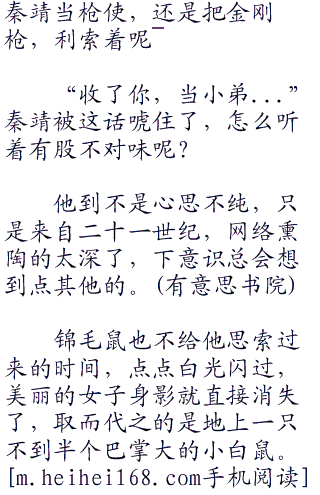 秦靖当枪使，还是把金刚
枪，利索着呢¯
“收了你，当小弟...”
秦靖被这话唬住了，怎么听
着有股不对味呢？
他到不是心思不纯，只
是来自二十一世纪，网络熏
陶的太深了，下意识总会想
到点其他的。(有意思书院)
锦毛鼠也不给他思索过
来的时间，点点白光闪过，
美丽的女子身影就直接消失
了，取而代之的是地上一只
不到半个巴掌大的小白鼠。
[m.heihei168.com手机阅读]